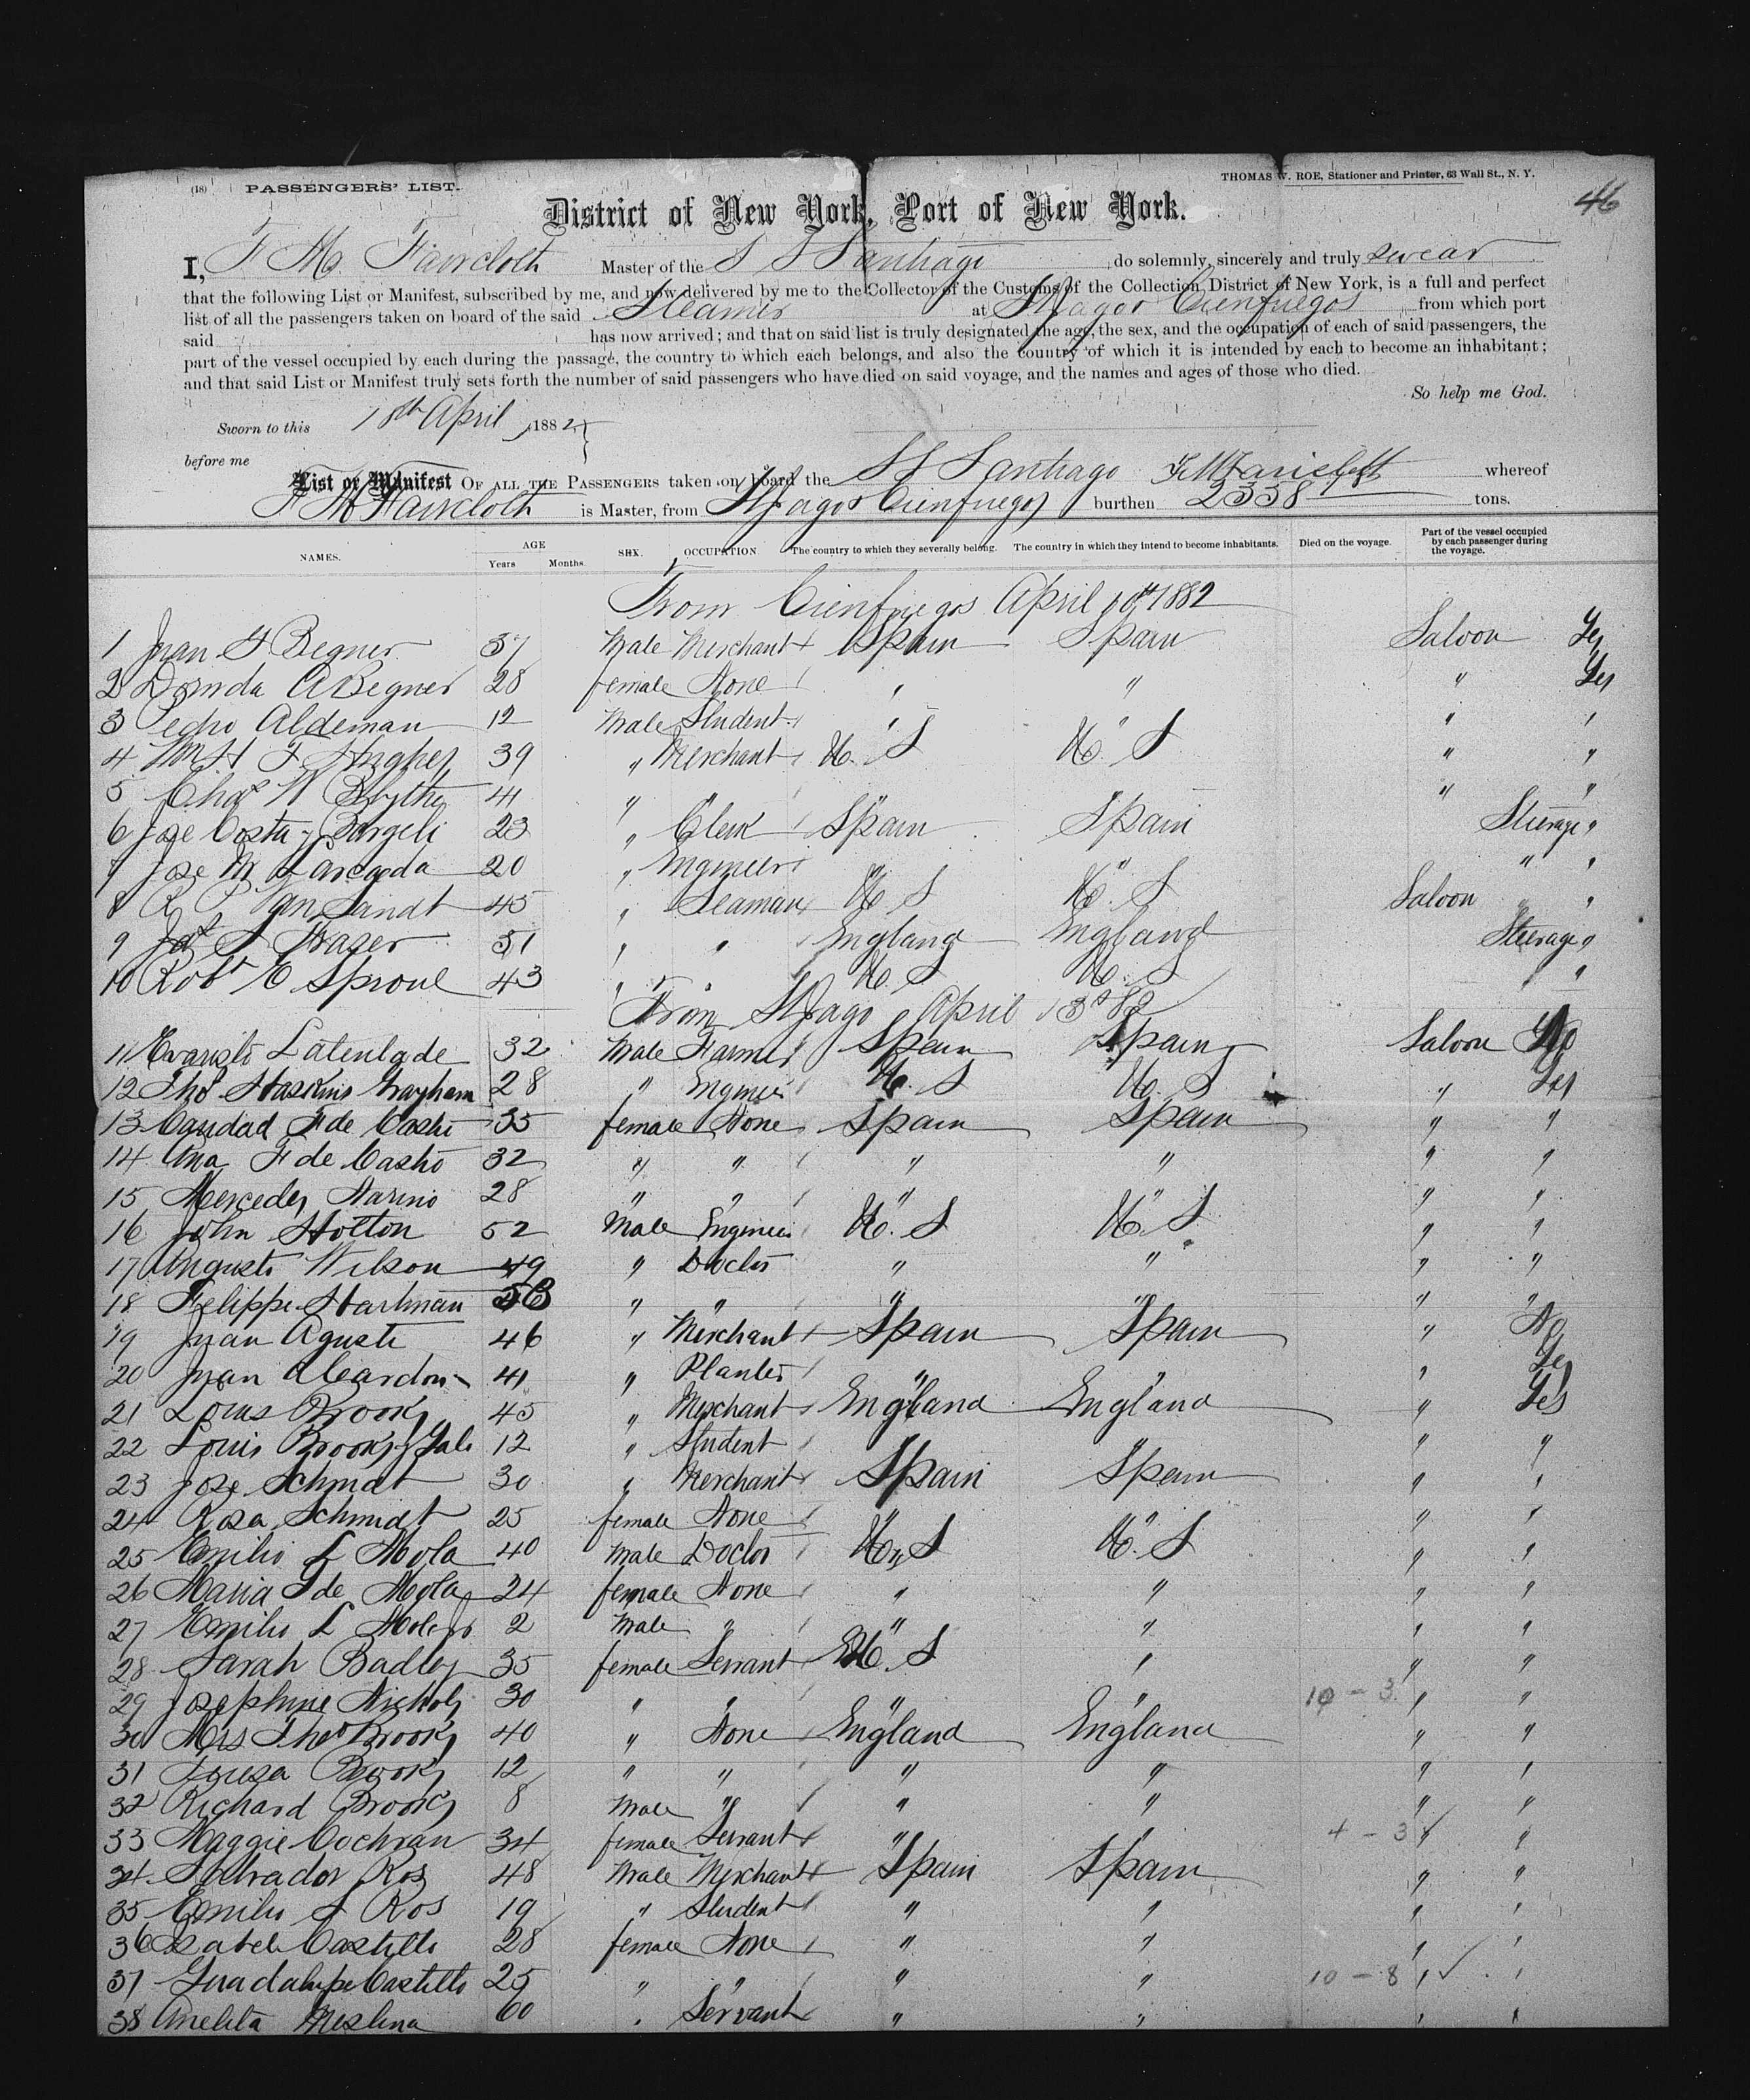 (18) PASSENGERS' LIST.
THOMAS W. ROE, Stationer and Printer, 63 Wall St., N. Y.
46
District of New York, Port of New York.
I, F M Faircloth Master of the S S Santiago do solemnly, sincerely and truly swear
that the following List or Manifest, subscribed by me, and now delivered by me to the Collector of the Customs of the Collection District of New York, is a full and perfect
list of all the passengers taken on board of the said Steamer at St Jago & Cienfuegos from which port
said has now arrived; and that on said list is truly designated the age, the sex, and the occupation of each of said passengers, the
part of the vessel occupied by each during the passage, the country to which each belongs, and also the country of which it is intended by each to become an inhabitant;
and that said List or Manifest truly sets forth the number of said passengers who have died on said voyage, and the names and ages of those who died.
So help me God.
Sworn to this 18th April 1882
before me
F M Faircloth
List or Manifest OF ALL THE PASSENGERS taken on board the S S Santiago whereof
F M Faircloth is Master, from St Jago & Cienfuegos burthen 2358 tons.
NAMES. AGE Years Months SEX. OCCUPATION The country to which they severally belong. The country in which they intend to become inhabitants. Died on the voyage. Part of the vessel occupied by each passenger during the voyage.
From Cienfuegos April 10th 1882
1 Juan F Begner 37 Male Merchant Spain Spain Saloon Yes
2 A Begner 28 female None " " " Yes
3 Pedro Aldeman 12 Male Student " " "
4 39 " Merchant U. S U. S " "
5 Chas W Blythe 41 " " " " " "
6 Jose Costa y 23 " Clerk Spain Spain Steerage "
7 Jose M 20 " Engineer " " " "
8 R P Van Sandt 45 " Seaman U S U. S Saloon "
9 Jas S Frazer 31 " " England England Steerage "
10 Robt E Sproul 43 " " U. S U. S "
From St Jago April 13th 82
11 Evaristo Latenlade 32 Male Farmer Spain Spain Saloon No
12 Thos Haskins Grayham 28 " Engineer U. S U. S " Yes
13 Caridad F de Castro 35 female None Spain Spain " "
14 Ana F de Castro 32 " " " " " "
15 Mercedes Narino 28 " " " " " "
16 John Holton 52 Male Engineer U. S U. S " "
17 Augusto Wilson 49 " Doctor " " " "
18 Felippe Hartman " " " " " "
19 Juan Agusti 46 " Merchant Spain Spain " No
20 Juan 41 " Planter " " " Yes
21 Louis Brooks 45 " Merchant England England " Yes
22 Louis Brooks y 12 " Student " " " "
23 Jose Schmidt 30 " Merchant Spain Spain " "
24 Rosa Schmidt 25 female None " " " "
25 Emilio L Mola 40 Male Doctor U. S U. S " "
26 Maria de Mola 24 female None " " " "
27 Emilio L Mola Jr 2 Male " " " " "
28 Sarah Badley 35 female Servant U. S " " "
29 Josephine Nichols 30 " " " " 10 - 3 " "
30 Mrs Theo Brooks 40 " None England England " "
31 Brooks 12 " " " " " "
32 Richard Brooks 8 Male " " " " "
33 Maggie Cochran 34 female Servant " " 4 - 3 " "
34 Salvador Ros 48 Male Merchant Spain Spain " "
35 Emilio S Ros 19 " Student " " " "
36 Isabela Castillo 28 female None " " " "
37 Guadalupe Castillo 25 " " " " 10 - 8 " "
38 60 " Servant " " " "